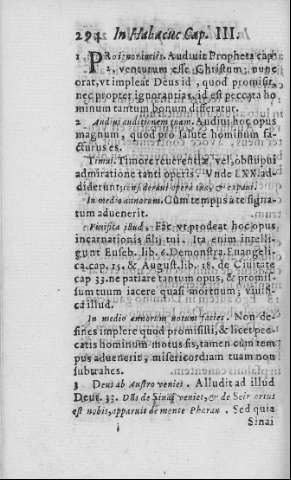 294 In Habacuc Cap. III.
1 PRo ignorantiis. Audiuit Propheta cap.
2, venturum esse Christum; nunc
orat, vt impleat Deus id, quod promisit,
nec propter ignorantias, id est peccata ho
minum tantum bonum differatur.
2 Audiui auditionem tuam. Audiui hoc opus
magnum, quod pro salute hominum fa-
cturus es.
Timui. Timore reuerentiæ vel, obstupui
admiratione tanti operis. Vnde LXX. ad-
diderunt; consideraui opera tua, & expaui.
In medio annorum. Cùm tempus à te signa-
tum aduenerit.
Viuifica illud. Fac vt prodeat hoc opus
incarnationis filij tui. Ita enim intelli-
gunt Euseb. lib. 6. Demonstra. Euangeli-
ca. cap. 15. & August. lib. 18. de Ciuitate
cap 33. ne patiare tantum opus, & promis-
sum tuum iacere quasi mortuum, viuifi-
ca illud.
In medio annorum notum facies. Non de-
sines implere quod promisisti, & licet pec-
catis hominum motus sis, tamen cùm tem
pus aduenerit, misericordiam tuam non
subtrahes.
3 Deus ab Austro veniet. Alludit ad illud
Deut. 33. Dñs de Sinai veniet, & de Seir ortus
est nobis, apparuit de monte Pharan. Sed quia
Sinai